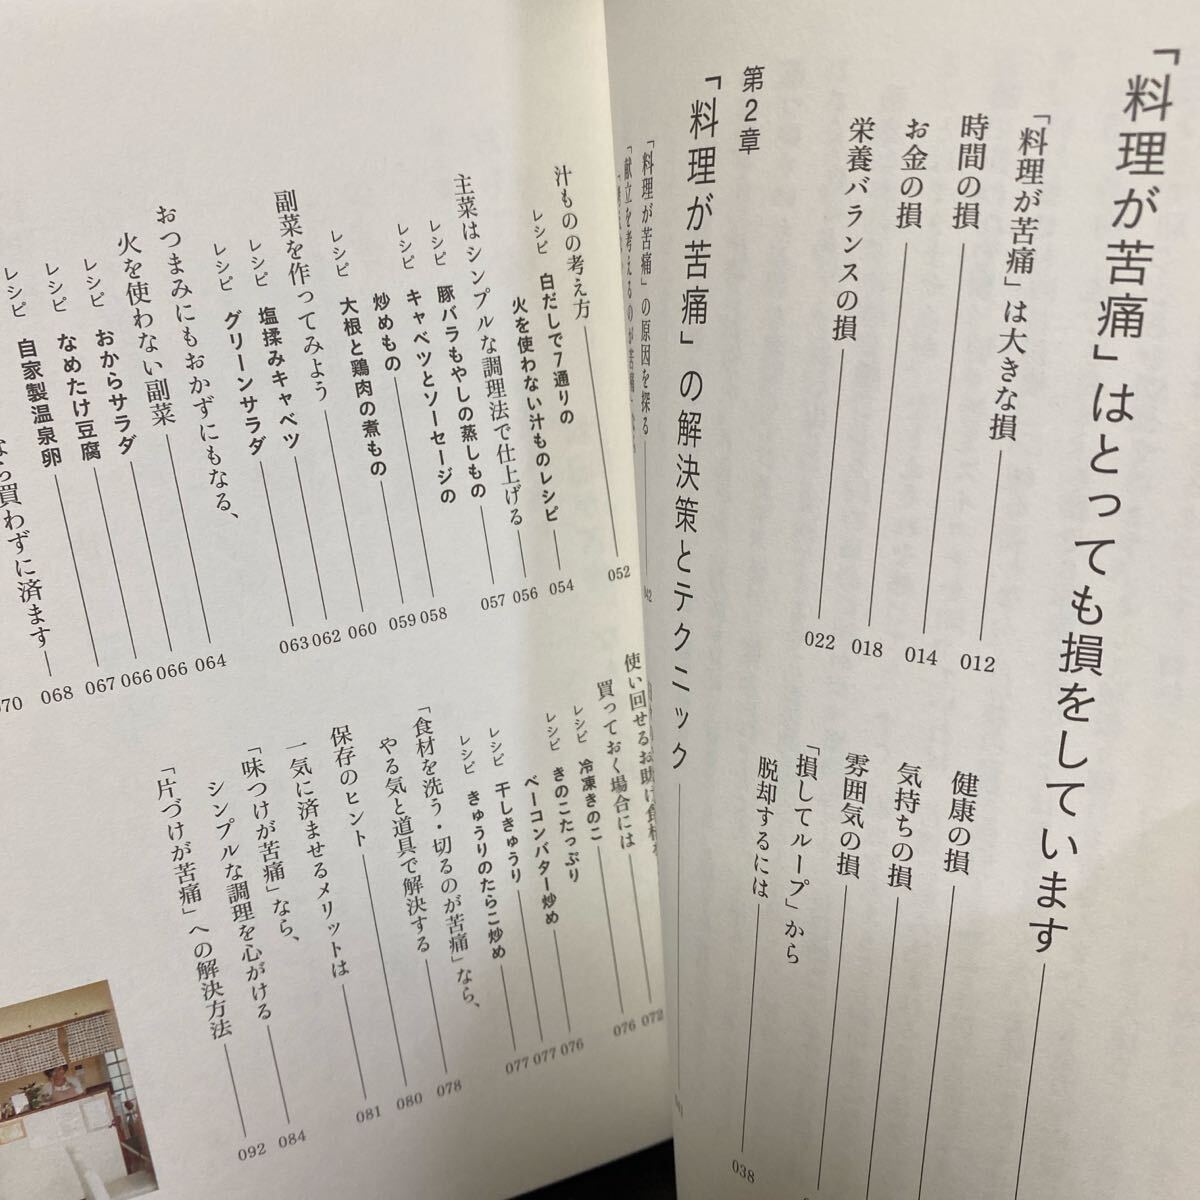 「料理が苦痛」はとっても損をしています
「料理が苦痛」は大きな損 012
時間の損 014
お金の損 018
栄養バランスの損 022
健康の損
気持ちの損
雰囲気の損
「損してループ」から
脱却するには 038
第2章
「料理が苦痛」の解決策とテクニック
「料理が苦痛」の原因を探る 042
「献立を考えるのが苦痛
汁ものの考え方 052
レシピ 白だしで7通りの
火を使わない汁ものレシピ 054
主菜はシンプルな調理法で仕上げる 056
レシピ 豚バラもやしの蒸しもの 057
レシピ キャベツとソーセージの
炒めもの 058
レシピ 大根と鶏肉の煮もの 059
副菜を作ってみよう 060
レシピ 塩揉みキャベツ 062
レシピ グリーンサラダ 063
おつまみにもおかずにもなる、
火を使わない副菜 064
レシピ おからサラダ 066
レシピ なめたけ豆腐 066
レシピ 自家製温泉卵 067
買わずに済ます 068
070
使い回せるお助け食材 072
買っておく場合には 076
レシピ 冷凍きのこ 076
レシピ きのこたっぷり
ベーコンバター炒め 077
レシピ 干しきゅうり 077
レシピ きゅうりのたらこ炒め
「食材を洗う・切るのが苦痛」なら、
やる気と道具で解決する 078
保存のヒント 080
一気に済ませるメリットは 081
「味つけが苦痛」なら、
シンプルな調理を心がける 084
「片づけが苦痛」への解決方法 092